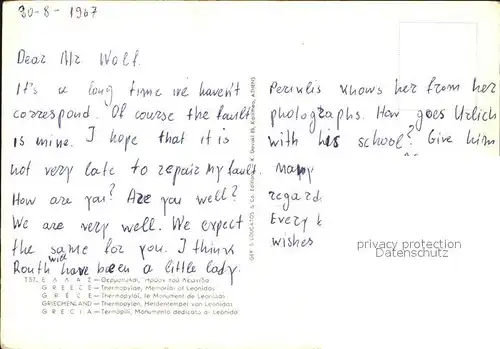 20-8-1967
Dear Mr. Wolf.
It's a long time we haven't
correspond. Of course the fault
is mine. I hope that it is
not very late to repair my fault.
How are you? Are you well?
We are very well. We expect
the same for you. I think
Routh will have been a little lady.
Periklis knows her from her
photographs. How goes Urlich
with his school? Give him
many
regard
Every k
wishes
privacy protection
Datenschutz
GREECE — Thermopylae, Memorial of Leonidas
GRÈCE — Thermopylai, le Monument de Leonidas
GRIECHENLAND — Thermopylen, Heldentempel van Leonidas
GRECIA — Termópili, Monumento dedicato a Leonida